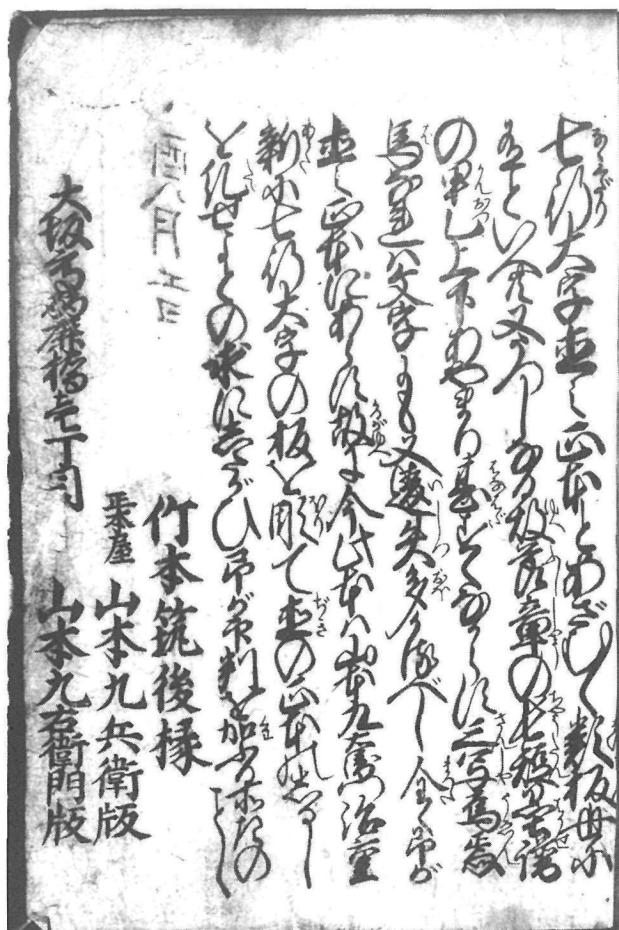 七行大字直之正本とあざむく類板世に
有といへ共又うつしなる故節章の長短墨譜
の甲乙上下あやまり甚すくなからず三写烏焉
馬なれば文字にも又遺失多かるべし全く予が
直之正本にあらず故に今此本は山本九右衛門治重
新に七行大字の板を彫て直の正本のしるし
を糺せよとの求にしたがひ予が印判を加ふる所左の
ごとし
酉八月吉日
竹本筑後掾
正本屋 山本九兵衛版
大坂高麗橋壱丁目 山本九右衛門版